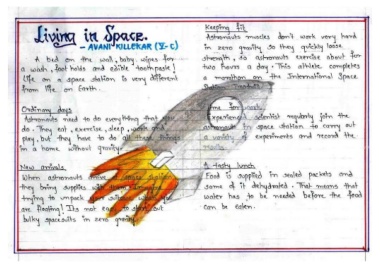 Living in Space.
- AVANI KILLEKAR (V-C)
A bed on the wall, baby wipes for
a wash, foot holds and edible toothpaste!
Life on a space station is very different
from life on Earth.
Ordinary days
Astronauts need to do everything that you
do. They eat, exercise, sleep, work and
play, but they have to do all these things
in a home without gravity.
New arrivals
When astronauts arrive a space station
they bring supplies with them.
trying to unpack
are floating! Its not easy to
bulky spacesuits in zero gravity.
Keeping fit
Astronauts muscles don't work very hard
in zero gravity so they quickly loose
strength, so astronauts exercise about for
two hours a day. This athlete completes
a marathon on the International Space
Time for work
Experienced scientist regularly join the
astronauts in space station to carry out
experiments and record the
A tasty lunch
Food is supplied in sealed packets and
some of it dehydrated. That means that
water has to be needed before the food
can be eaten.